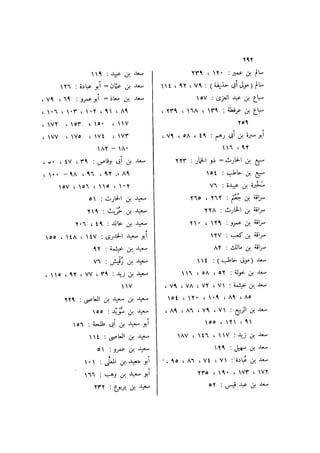 ٢٩٢
سالم بن عمير : ١٢٠ ، ٢٣٩
سالم ( مولى أبى حذيفة ) : ٧٩ ، ٩٢ ، ١١٤
سباع بن عبد العزى : ١٥٧
سباع بن عرفطة : ١٣٩ ، ١٦٨ ، ٢٣٩ ،
٢٥٩
أبو سبرة بن أبى رهم : ٤٩ ، ٥٨ ، ٧٩ ،
٩٢ ، ١١٦
سبيع بن الحارث = ذو الخمار : ٢٢٣
سبيع بن حاطب : ١٥٤
سخبرة بن عبيدة : ٧٦
سراقة بن جعشم : ٢٦٢ ، ٢٦٥
سراقة بن الحارث : ٢٢٨
سراقة بن عمرو : ١٢٩ ، ٢١٠
سراقة بن كعب : ١٢٧
سراقة بن مالك : ٨٢
سعد ( مولى حاطب ) : ١١٤
سعد بن خولة : ٥٢ ، ٥٨ ، ١١٦
سعد بن خيثمة : ٧١ ، ٧٢ ، ٧٨ ، ٧٩ ،
٨٥ ، ٨٩ ، ١٠٩ ، ١٢٠ ، ١٥٤
سعد بن الربيع : ٧١ ، ٧٩ ، ٨٦ ، ٨٩ ،
٩١ ، ١٢١ ، ١٥٥
سعد بن زيد : ١١٧ ، ١٤٦ ، ١٨٧
سعد بن سهيل : ١٢٩
سعد بن عبادة : ٧١ ، ٧٤ ، ٨٦ ، ٩٥ ،
١٧٢ ، ١٧٣ ، ١٩٠ ، ٢٣٥
سعد بن عبد قيس : ٥٢
سعد بن عبيد : ١١٩
سعد بن عثمان = أبو عبادة : ١٢٦
سعد بن معاذ = أبو عمرو : ٦٩ ، ٧٩ ،
٨٩ ، ٩١ ، ١٠٢ ، ١٠٣ ، ١٠٦ ،
١١٧ ، ١٥٠ ، ١٥٣ ، ١٧٢ ،
١٧٣ ، ١٧٤ ، ١٧٥ ، ١٧٧ ،
١٨٠ - ١٨٢
سعد بن أبى وقاص : ٣٩ ، ٤٧ ، ٥٠ ،
٨٩ ، ٩٢ ، ٩٦ ، ٩٨ - ١٠٠ ،
١٠٢ ، ١١٥ ، ١٥٦ ، ١٥٧
سعيد بن الحارث : ٥١
سعيد بن حريث : ٢١٩
سعيد بن خالد : ٤٩ ، ٢٠٦
أبو سعيد الخدرى : ١٤٧ ، ١٤٨ ، ١٥٥
سعيد بن خيثمة : ٩٢
سعيد بن رقيش : ٧٦
سعيد بن زيد : ٣٩ ، ٧٧ ، ٩٢ ، ١١٥ ،
١١٧
سعيد بن سعيد بن العاصى : ٢٢٩
سعيد بن سويد : ١٥٥
أبو سعيد بن أبى طلحة : ١٥٦
سعيد بن العاصى : ١١٤
سعيد بن عمرو : ٥١
أبو سعيد بن المعلى : ١٠١
أبو سعيد بن وهب : ١٦٦
سعيد بن يربوع : ٢٣٢